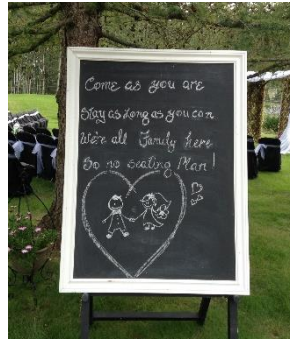 Come as you are
Stay as Long as you can
We're all Family here
So no seating Plan!